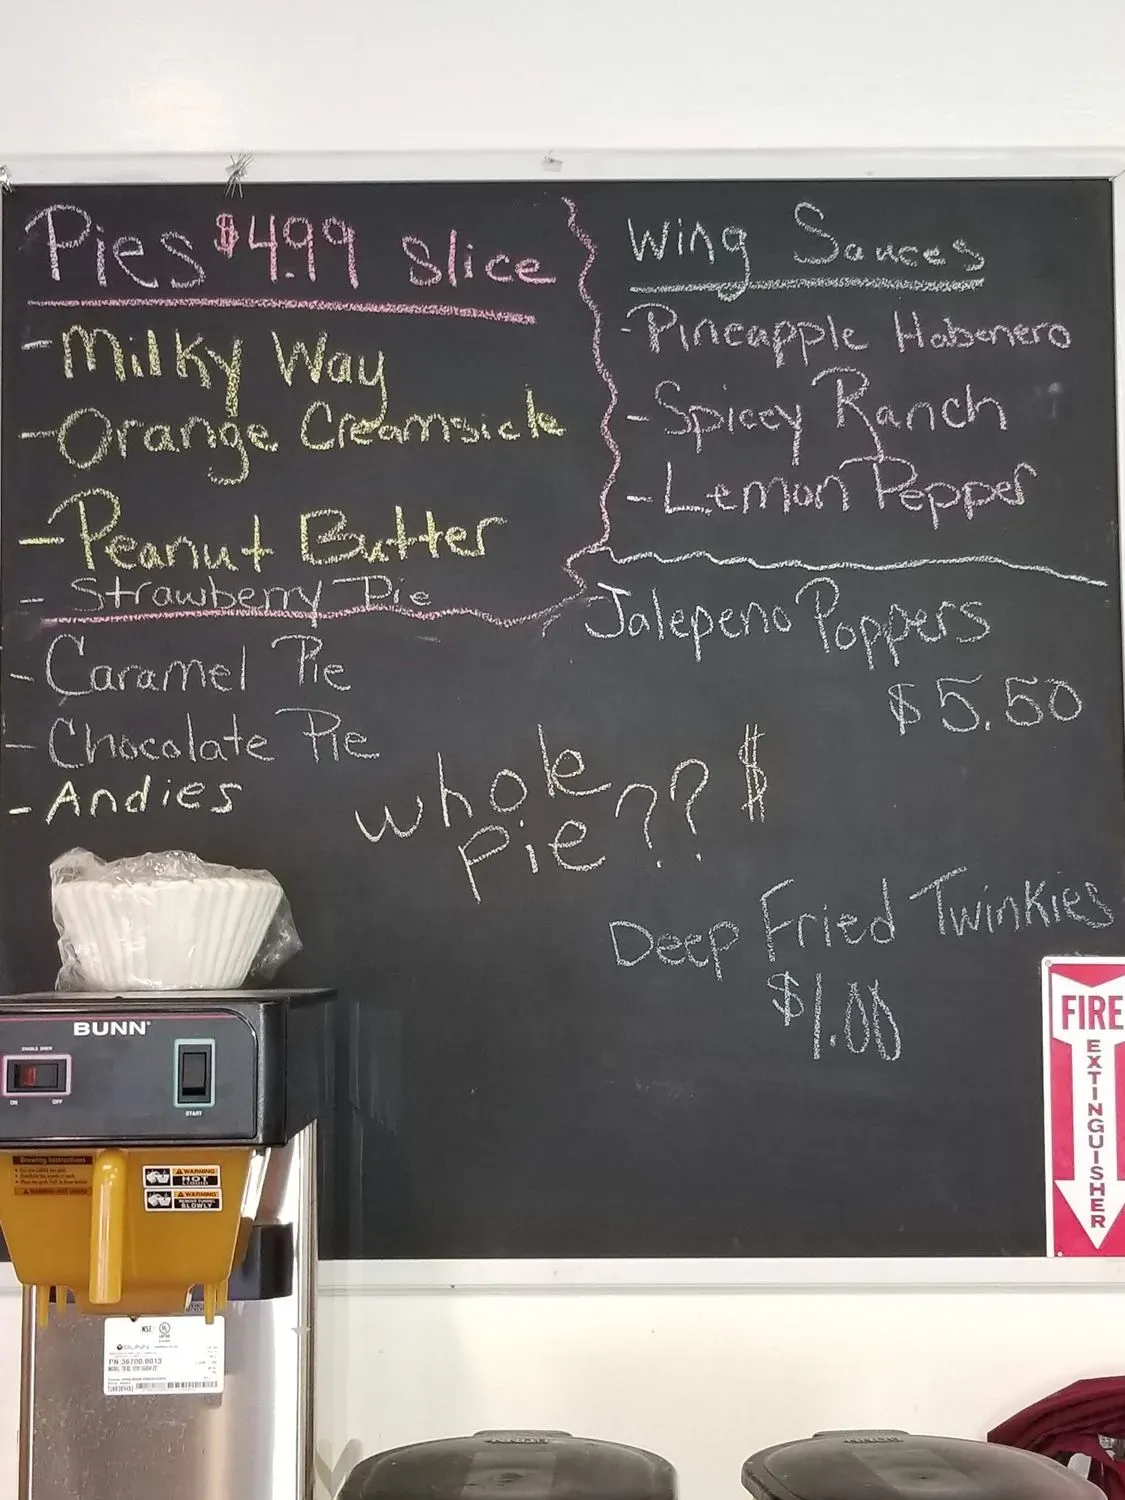 Pies $4.99 Slice
- Milky Way
- Orange Creamsicle
- Peanut Butter
- Strawberry Pie
- Caramel Pie
- Chocolate Pie
- Andies
Wing Sauces
- Pineapple Habenero
- Spicey Ranch
- Lemon Pepper
Jalepeno Poppers
$5.50
Whole
Pie ?? $
Deep Fried Twinkies
$1.00
FIRE
EXTINGUISHER
BUNN
ENABLE BREW
ON OFF
START
Brewing Instructions
WARNING
HOT
WARNING
REMOVE FUNNEL
SLOWLY
NSF
BUNN
PN:36700.0013